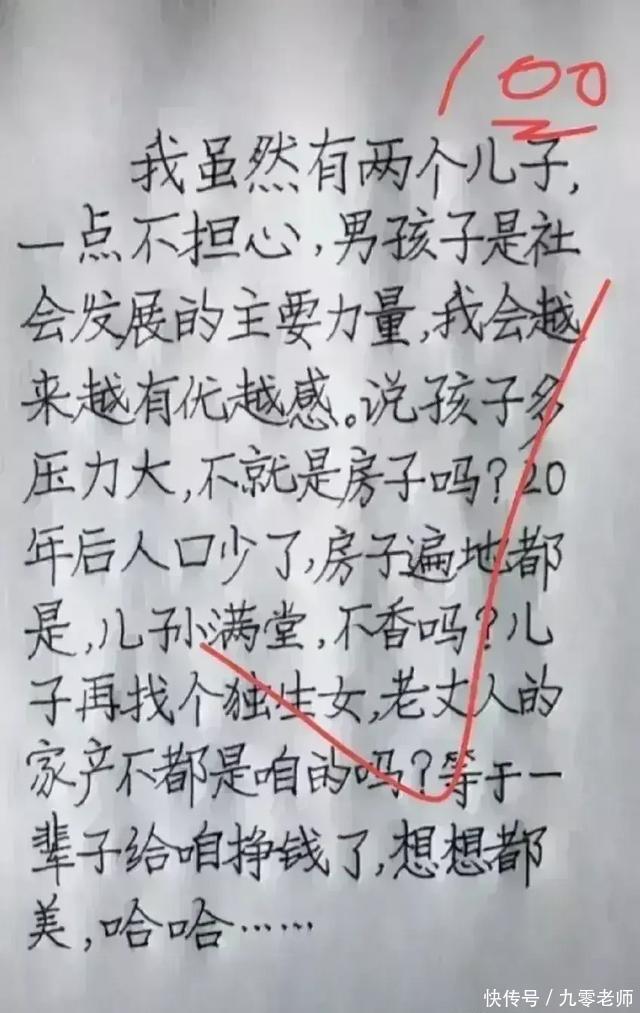 100
我虽然有两个儿子，
一点不担心，男孩子是社
会发展的主要力量，我会越
来越有优越感。说孩子多
压力大，不就是房子吗？20
年后人口少了，房子遍地都
是，儿子孙满堂，不香吗？儿
子再找个独生女，老丈人的
家产不都是咱的吗？等于一
辈子给咱挣钱了，想想都
美，哈哈……
快传号／九零老师